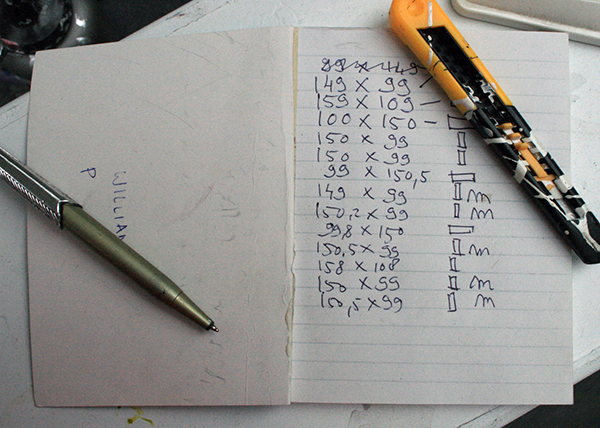 WILLIAM
P
99 x 149
149 x 99
159 x 109 –
100 x 150 –
150 x 99
150 x 99
99 x 150,5
149 x 99 m
150,2 x 99 m
99,8 x 150
150,5 x 99 m
158 x 108
150 x 99 m
150,5 x 99 m